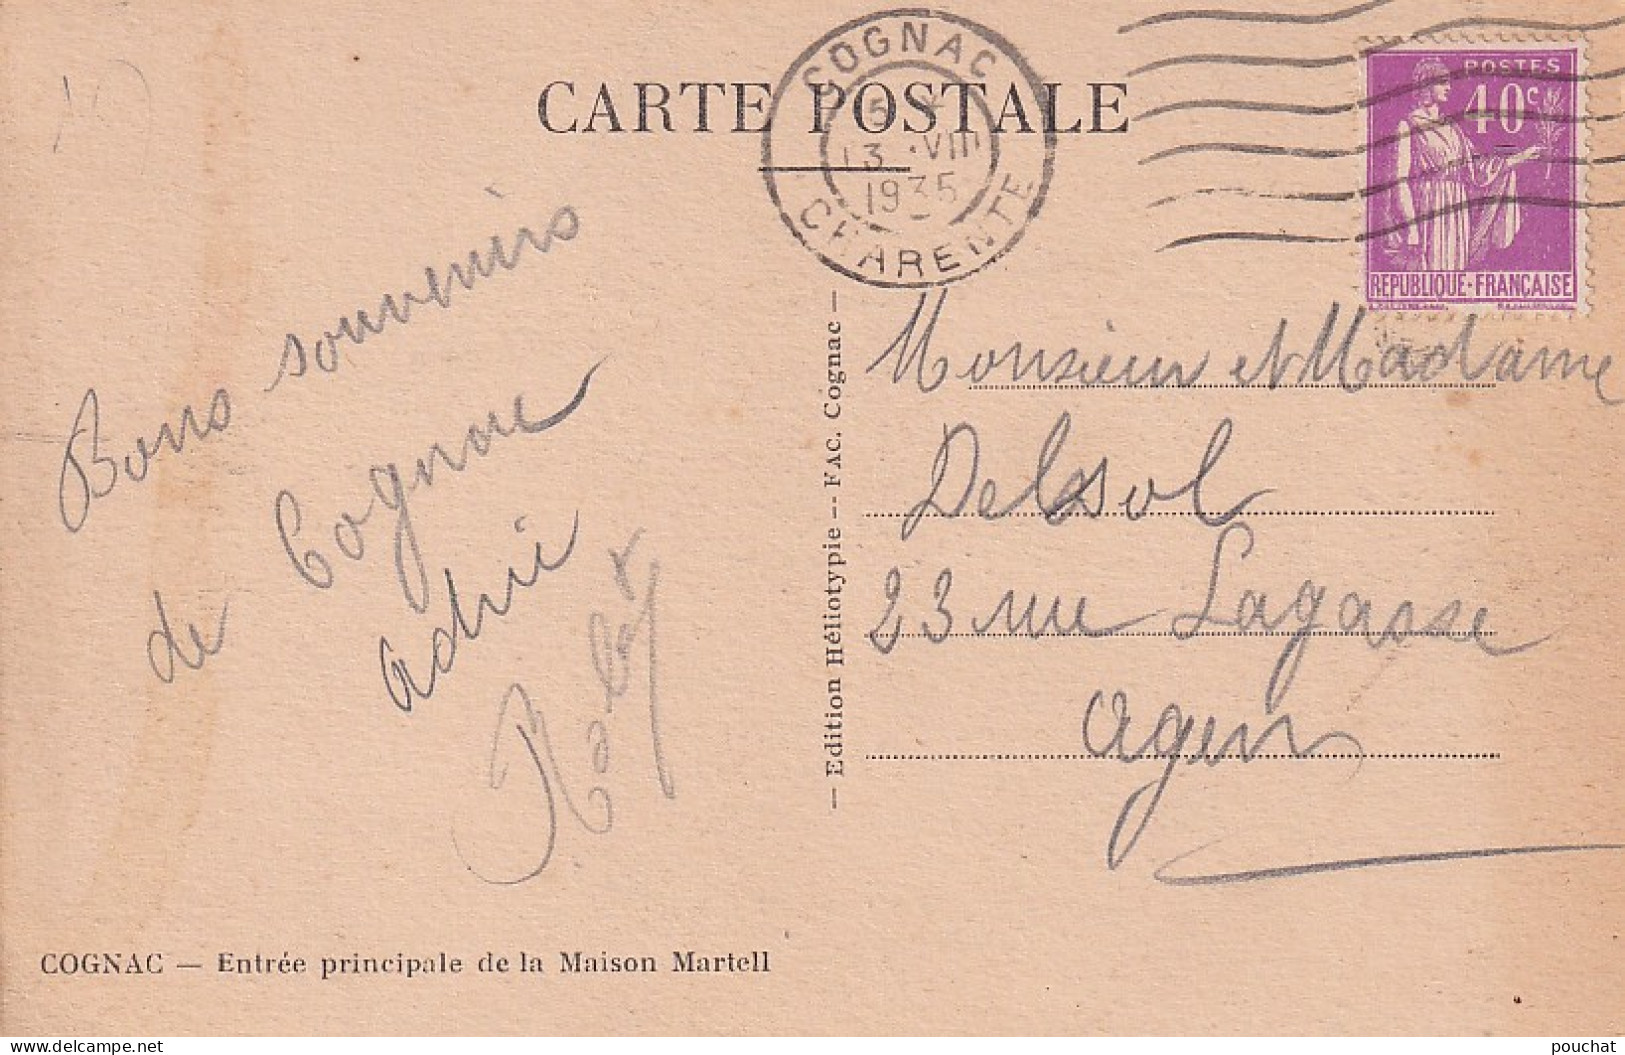 CARTE POSTALE
COGNAC
13 ·VIII
1935
CHARENTE
POSTES
40c
REPUBLIQUE·FRANÇAISE
Bons souvenirs
de Cognac
Monsieur et Madame
Delsol
23 rue Lagasse
Agen
— Edition Héliotypie -- FAC. Cognac —
COGNAC — Entrée principale de la Maison Martell
delcampe.net
pouchat